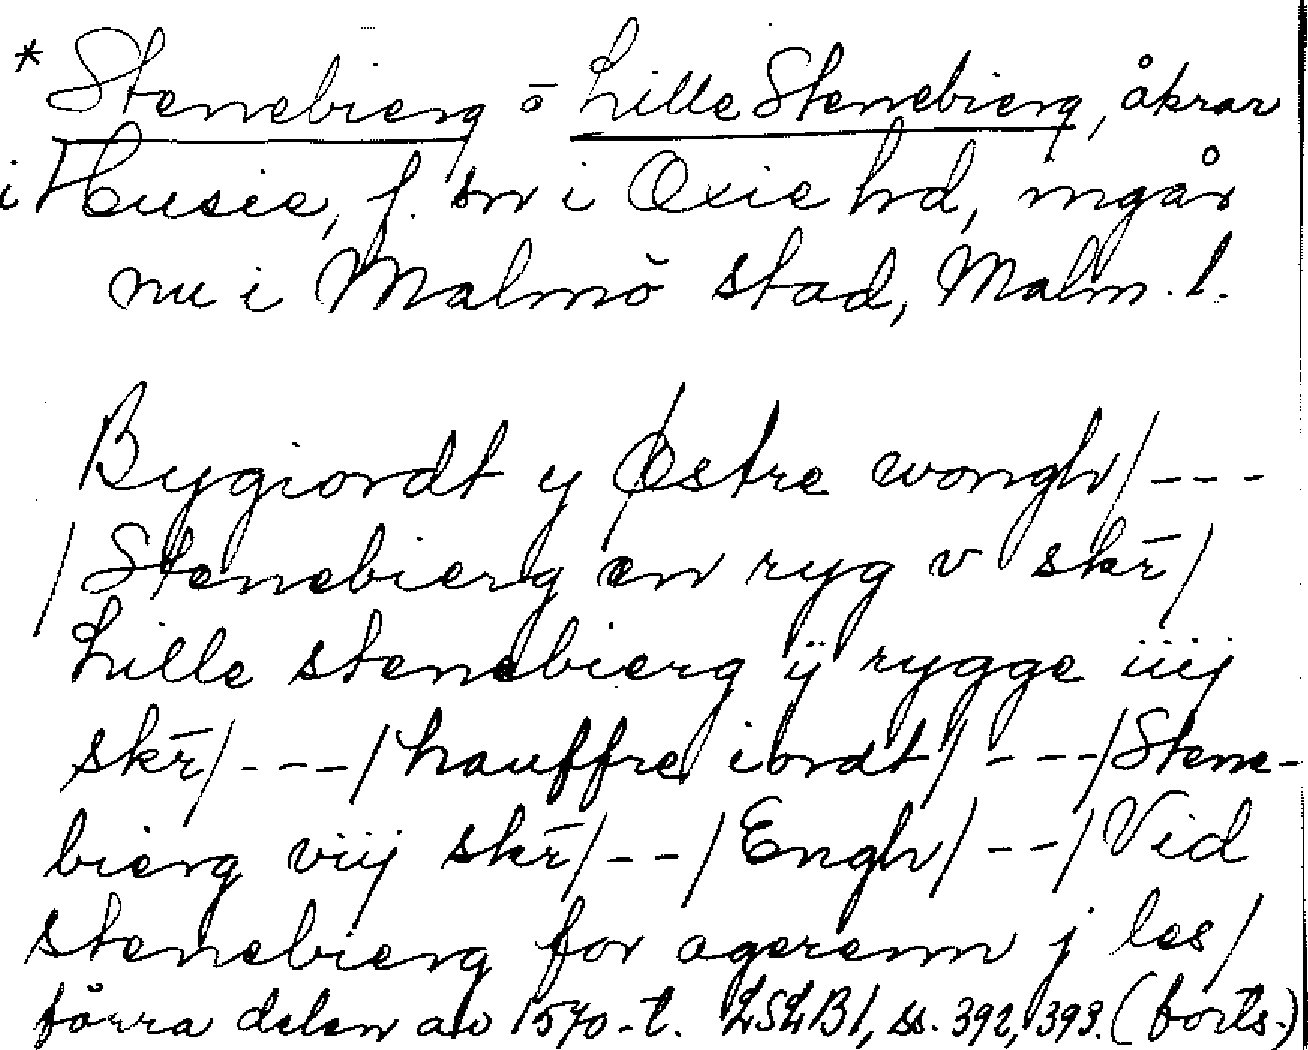 * Stenebierg o̅ Lille Stenebierg, åkrar
i Husie, f. sn i Oxie hd, ingår
nu i Malmö stad, Malm. l.
Bygiordt y Østre wongh/---
/Stenebierg en ryg v skr̅/
Lille stenebierg ij rygge iiij
skr̅/---/hauffre iordt/---/Stene-
bierg viij skr̅/--/Engh/--/Vid
stenebierg for agerenn j les/
förra delen av 1570-t. LSLB1, ss. 392, 393. (forts.)